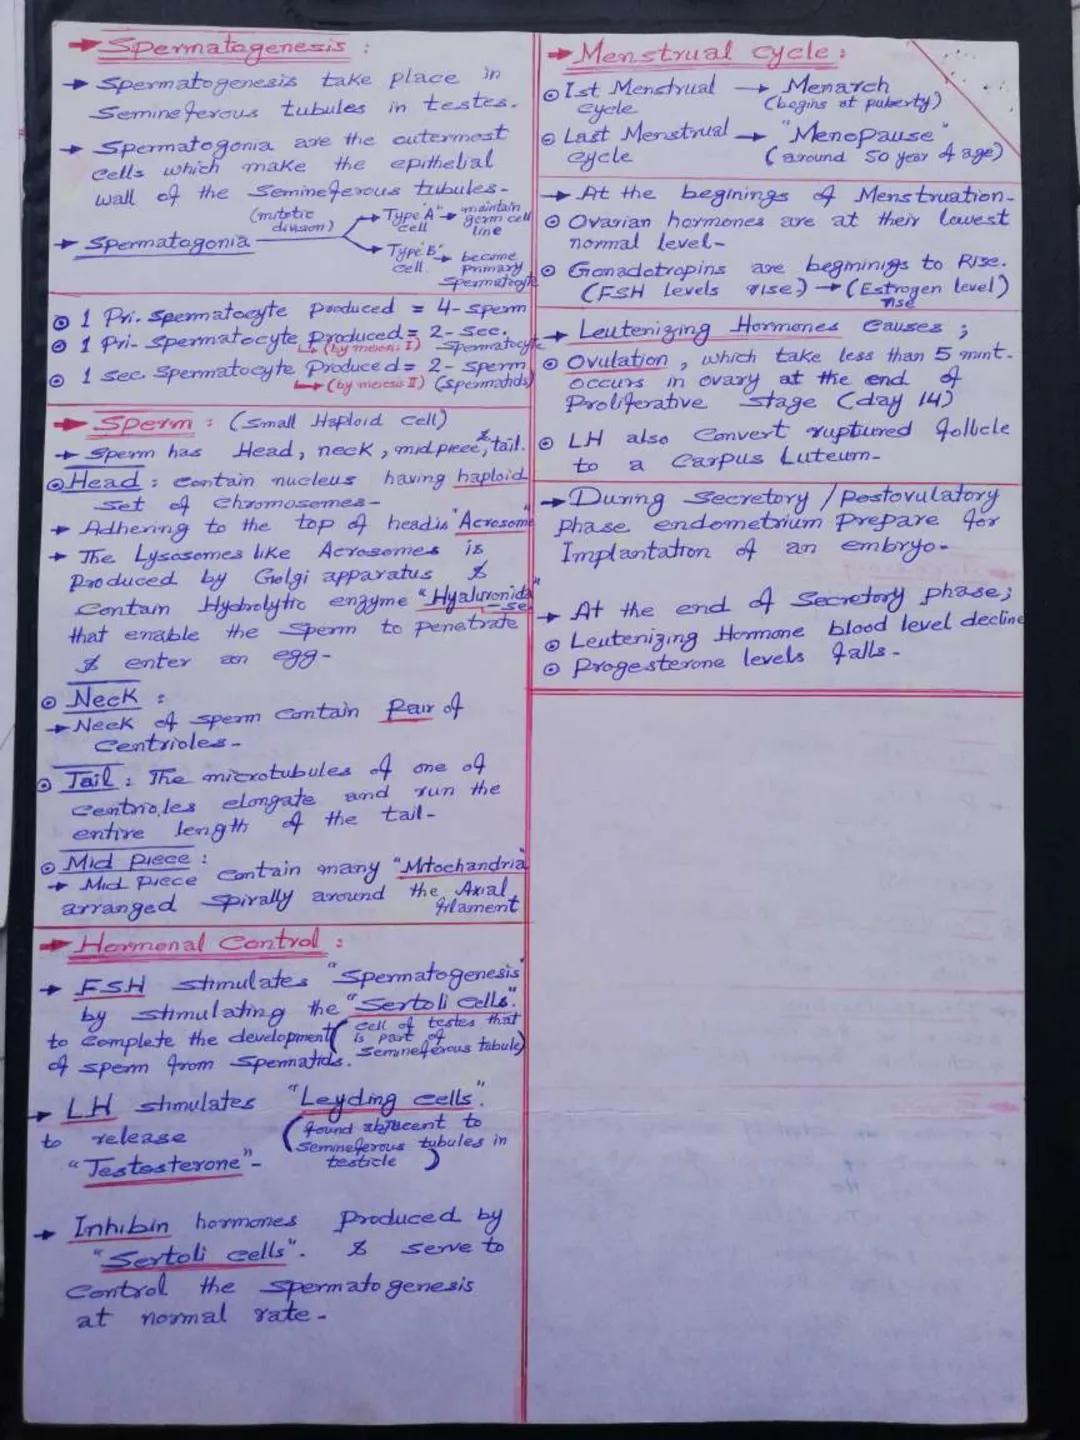 → Spermatogenesis :
→ Spermatogenesis take place in
Semineferous tubules in testes.
→ Spermatogonia are the outermost
cells which make the epithelial
wall of the Semineferous tubules-
→ Spermatogonia (mitotic division) → Type "A" cell → maintain germ cell line
→ Type "B" cell → become primary spermatocyte
⊙ 1 Pri. spermatocyte produced = 4-sperm
⊙ 1 Pri- spermatocyte produced = 2-sec. spermatocyte
↳ (by meiosis I)
⊙ 1 sec. spermatocyte produced = 2-sperm
↳ (by meiosis II) (spermatids)
→ Sperm : (small Haploid cell)
→ Sperm has Head, neck, midpiece, & tail.
⊙ Head : contain nucleus having haploid
set of chromosomes-
→ Adhering to the top of head is "Acrosome
→ The Lysosomes like Acrosomes is
produced by Golgi apparatus &
contain Hydrolytic enzyme "Hyaluronida
-se"
that enable the sperm to penetrate
& enter an egg-
⊙ Neck :
→ Neck of sperm contain pair of
centrioles-
⊙ Tail : The microtubules of one of
centrioles elongate and run the
entire length of the tail-
⊙ Mid piece :
→ Mid piece contain many "Mitochondria
arranged spirally around the Axial
filament
→ Hormonal Control :
→ FSH stimulates "Spermatogenesis"
by stimulating the "Sertoli cells".
to complete the development (cell of testes that
is part of
of sperm from spermatids. semineferous tubule)
→ LH stimulates "Leyding cells".
to release (found abjacent to
semineferous tubules in
testicle)
"Testosterone"-
→ Inhibin hormones produced by
"Sertoli cells". & serve to
control the spermatogenesis
at normal rate-
→ Menstrual cycle :
⊙ Ist Menstrual cycle → Menarch
(begins at puberty)
⊙ Last Menstrual cycle → "Menopause"
(around 50 year of age)
→ At the beginings of Menstruation-
⊙ Ovarian hormones are at their lowest
normal level-
⊙ Gonadotropins are begninigs to Rise.
(FSH levels rise) → (Estrogen level)
rise
→ Leutenizing Hormones causes ;
⊙ Ovulation, which take less than 5 mint-
occurs in ovary at the end of
Proliferative stage (day 14)
⊙ LH also convert ruptured follicle
to a Carpus Luteum-
→ During secretory / postovulatory
phase endometrium prepare for
Implantation of an embryo-
→ At the end of secretory phase;
⊙ Leutenizing Hormone blood level decline
⊙ Progesterone levels falls-